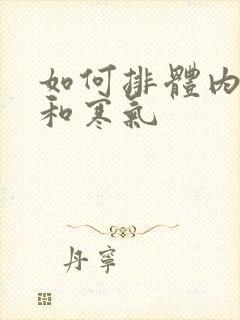 如何排體內
和寒氣
丹寧